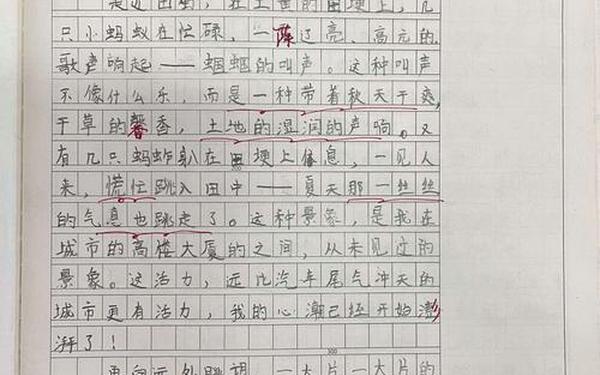 是近田野，在土黄的田埂上，几
只小蚂蚁在忙碌，一阵辽亮、高亢的
歌声响起——蝈蝈的叫声。这种叫声
不像什么乐，而是一种带着秋天干爽，
干草的馨香，土地的湿润的声响。又
有几只蚂蚱趴在田埂上休息，一见人
来，慌忙跳入田中——夏天那一丝丝
的气息也跳走了。这种景象，是我在
城市的高楼大厦的之间，从未见过的
景象。这活力，远比汽车尾气冲天的
城市更有活力，我的心潮已经开始澎
湃了！
300
再向远处眺望，一大片一大片的